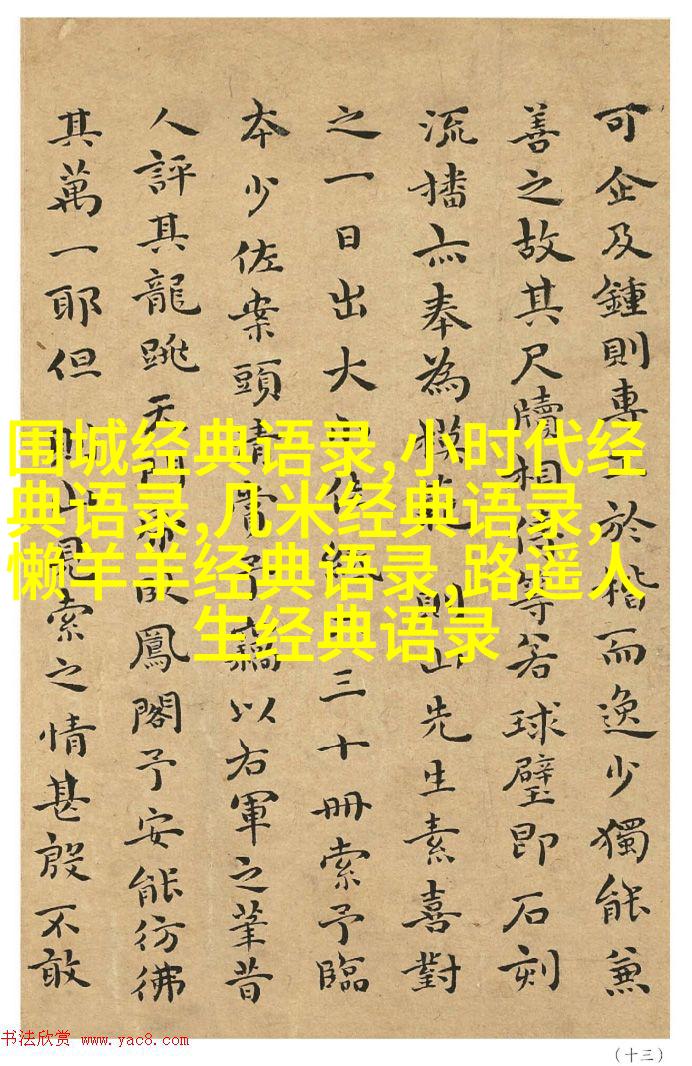 可企及鍾則專於楷而逸少獨能兼
善之故其尺牘相等若球璧即石刻
流播亦奉為模範則山先生素喜對
之一日出大三十冊索予臨
本少佐案頭清賞予藉以右軍之筆昔
人評其龍跳天門虎臥鳳閣予安能彷彿
其萬一耶但則山見索之情甚殷不敢
围城经典语录,小时代经
典语录,几米经典语录,
懒羊羊经典语录,路遥人
生经典语录
书法欣赏 www.yac8.com
(十三)